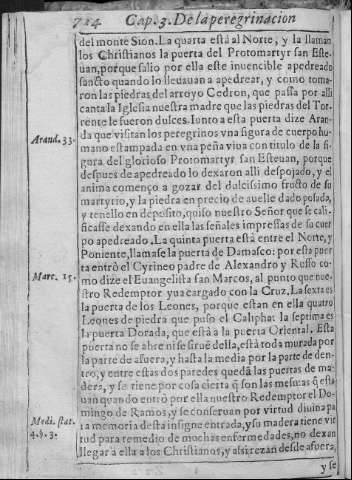 724 Cap. 3. De la peregrinacion
del monte Sion. La quarta està al Norte, y la llaman
los Christianos la puerta del Protomartyr san Este-
uan, porque salio por ella este inuencible apedreado
sancto quando lo lleuauan a apedrear, y como toma-
ron las piedras del arroyo Cedron, que passa por alli
canta la Iglesia nuestra madre que las piedras del Tor-
rente le fueron dulces. Iunto a esta puerta dize Aran-
Arand. 33.
da que visitan los peregrinos vna figura de cuerpo hu-
mano estampada en vna peña viua con titulo de la fi-
gura del glorioso Protomartyr san Esteuan, porque
despues de apedreado lo dexaron alli despojado, y el
anima començo a gozar del dulcissimo fructo de su
martyrio, y la piedra en precio de auelle dado posada,
y tenello en deposito, quiso nuestro Señor que se cali-
ficasse dexando en ella las señales impressas de su cuer
po apedreado. La quinta puerta està entre el Norte, y
Poniente, llamase la puerta de Damasco: por esta puer
ta entrò el Cyrineo padre de Alexandro y Russo co-
Marc. 15.
mo dize el Euangelista san Marcos, al punto que nue-
stro Redemptor yua cargado con la Cruz. La sexta es
la puerta de los Leones, porque estan en ella quatro
Leones de piedra que puso el Calipha: la septima es
la puerta Dorada, que està a la puerta Oriental. Esta
puerta no se abre ni se siruē della, està toda murada por
la parte de afuera, y hasta la media por la parte de den-
tro, y entre estas dos paredes quedā las puertas de ma-
dera, y se tiene por cosa cierta q̃ son las mesmas q̃ esta
uan quando entrò por ella nuestro Redemptor el Do-
mingo de Ramos, y se conseruan por virtud diuina pa
Medi. stat.
ra memoria desta insigne entrada, y su madera tiene vir
4. §. 3.
tud para remedio de muchas enfermedades, no dexan
llegar a ella a los Christianos, y assi rezan desde afuera,
y se